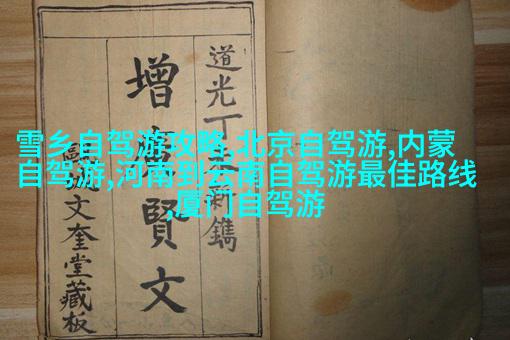 道光丁未新鐫
增廣賢文
文奎堂藏板
雪乡自驾游攻略,北京自驾游,内蒙
自驾游,河南到云南自驾游最佳路线
,厦门自驾游